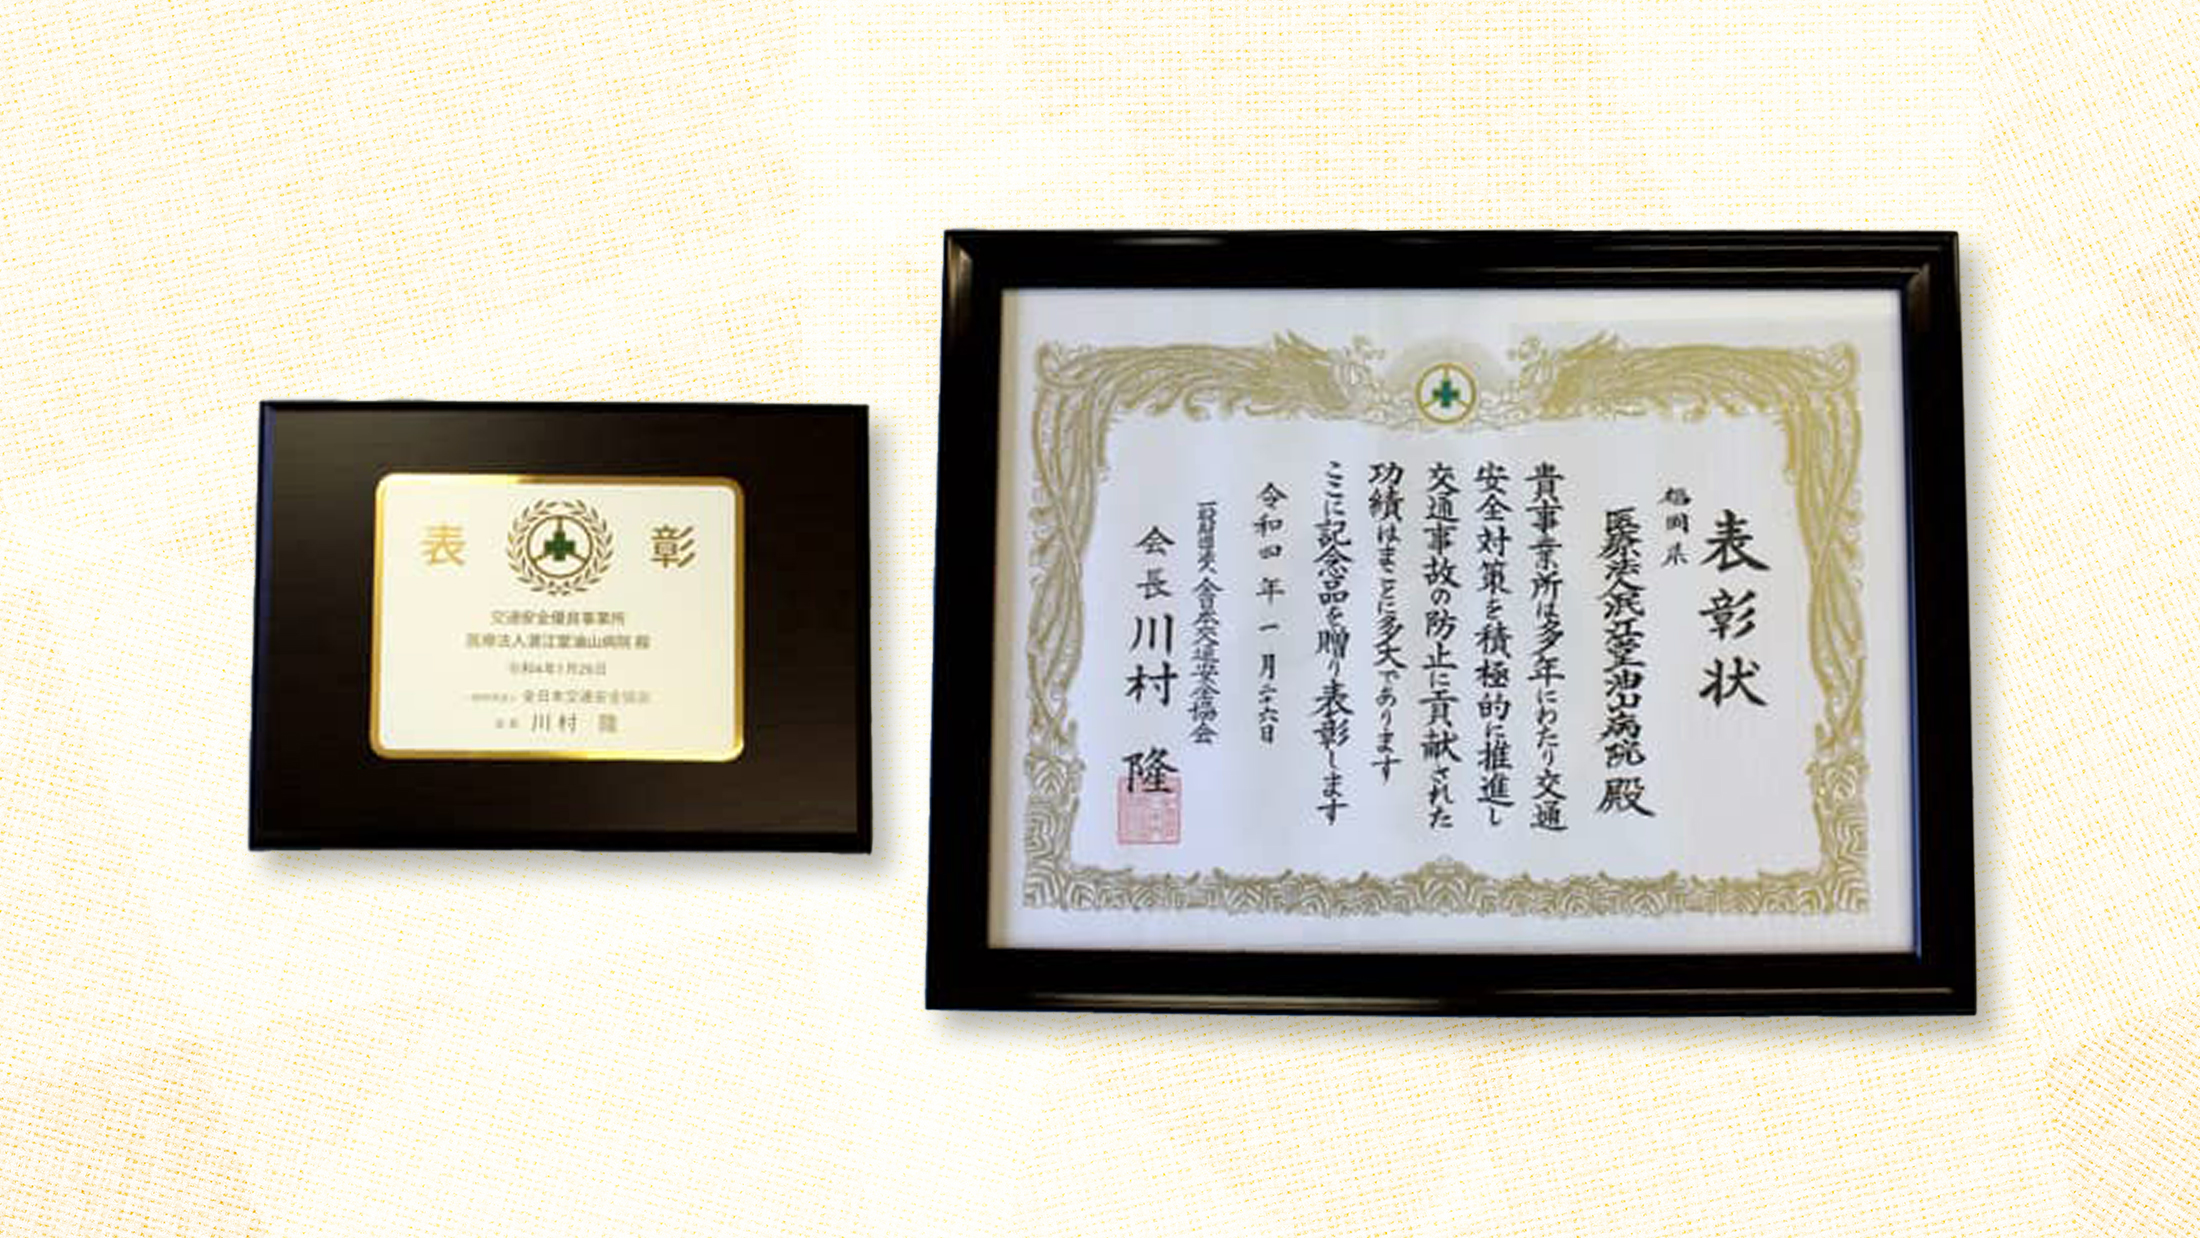 表 彰
交通安全優良事業所
医療法人湯江堂油山病院 殿
令和4年1月26日
全日本交通安全協会
会長 川村 隆
表彰状
福岡県
医療法人湯江堂油山病院 殿
貴事業所は多年にわたり交通
安全対策を積極的に推進し
交通事故の防止に貢献された
功績はまことに多大であります
ここに記念品を贈り表彰します
令和四年一月二十六日
一般財団法人 全日本交通安全協会
会長 川村 隆